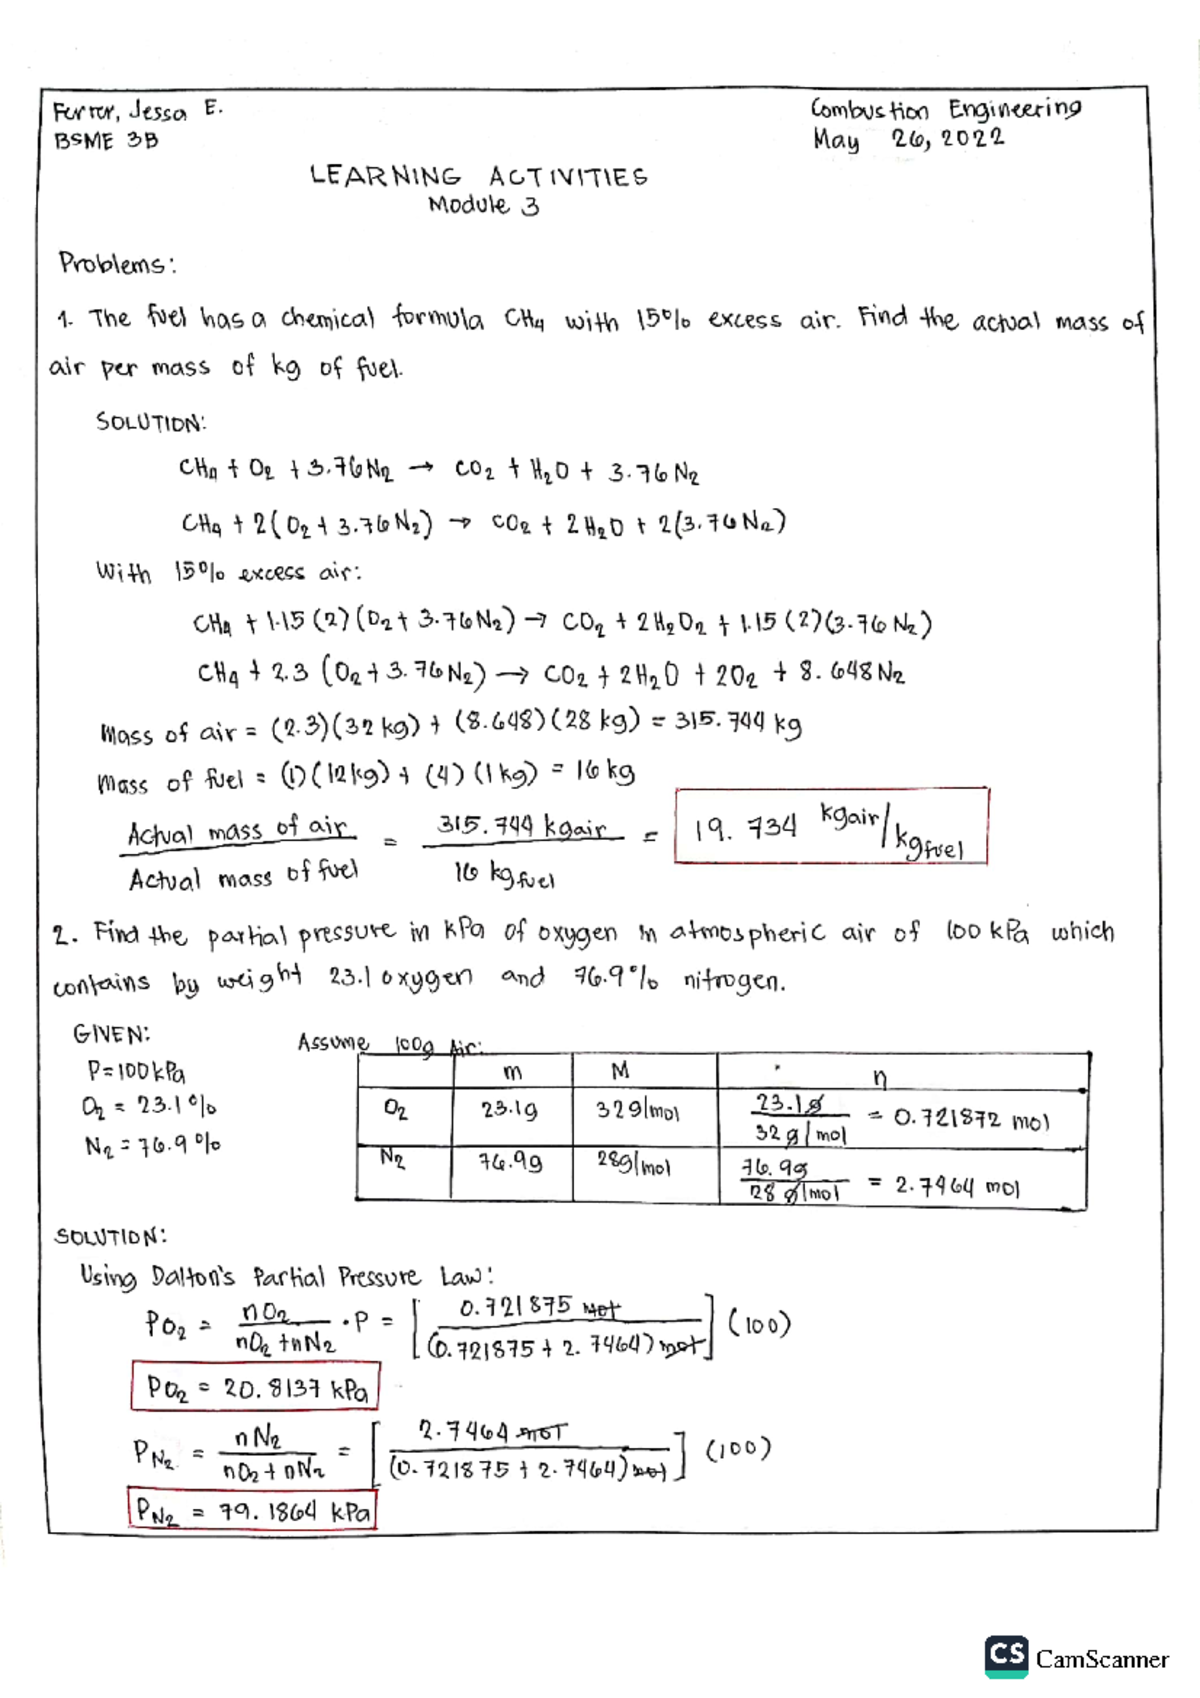 Ferrer, Jessa E.
Combustion Engineering
BSME 3B
May 26, 2022
LEARNING ACTIVITIES
Module 3
Problems:
1. The fuel has a chemical formula CH4 with 15% excess air. Find the actual mass of
air per mass of kg of fuel.
SOLUTION:
CH4 + O2 + 3.76N2 → CO2 + H2O + 3.76 N2
CH4 + 2(O2 + 3.76 N2) → CO2 + 2H2O + 2(3.76 N2)
With 15% excess air:
CH4 + 1.15 (2) (O2 + 3.76 N2) → CO2 + 2H2O2 + 1.15 (2)(3.76 N2)
CH4 + 2.3 (O2 + 3.76 N2) → CO2 + 2H2O + 2O2 + 8.648 N2
Mass of air = (2.3)(32 kg) + (8.648)(28 kg) = 315.744 kg
Mass of fuel = (1)(12kg) + (4)(1kg) = 16 kg
Actual mass of air / Actual mass of fuel = 315.744 kgair / 16 kgfuel = 19.734 kgair/kgfuel
2. Find the partial pressure in kPa of oxygen in atmospheric air of 100 kPa which
contains by weight 23.1 oxygen and 76.9% nitrogen.
GIVEN:
P=100kPa
O2 = 23.1%
N2 = 76.9%
Assume 100g Air:
m M n
O2 23.1g 32g/mol 23.1g / 32 g/mol = 0.721872 mol
N2 76.9g 28g/mol 76.9g / 28 g/mol = 2.7464 mol
SOLUTION:
Using Dalton's Partial Pressure Law:
PO2 = nO2 / nO2 + nN2 · P = [0.721875 mol / (0.721875 + 2.7464) mol] (100)
PO2 = 20.8137 kPa
PN2 = nN2 / nO2 + nN2 = [2.7464 mol / (0.721875 + 2.7464) mol] (100)
PN2 = 79.1864 kPa
CS CamScanner